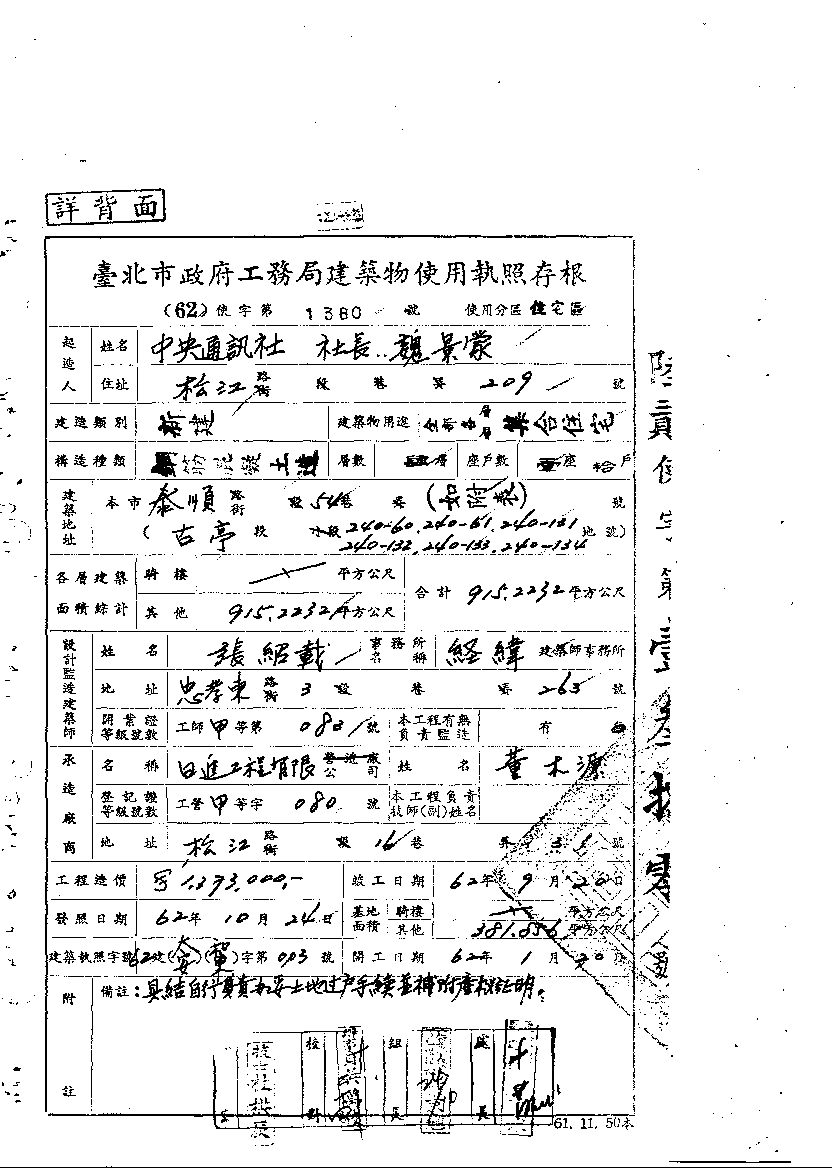 詳背面
臺北市政府工務局建築物使用執照存根
(62)使字第 1380 號 使用分區 住宅區
起造人 姓名 中央通訊社 社長 魏景蒙
住址 松江路街 段 巷 弄 209 號
建造類別 新建 建築物用途 集合住宅
構造種類 層數 層 座戶數 座 拾戶
建築地址 本市 泰順路街 段 54巷 弄 (如附表) 號
(古亭段 小段 240-60, 240-61, 240-131 地號)
240-132, 240-133, 240-134
各層建築面積綜計 騎樓 平方公尺 合計 915.2232平方公尺
其他 915.2232平方公尺
設計監造建築師 姓名 張紹載 事務所名稱 経緯 建築師事務所
地址 忠孝東路街 3段 巷 弄 263號
開業證等級號數 工師甲等第 0831號 本工程有無負責監造 有
承造廠商 名稱 日進工程有限公司 姓名 董木源
登記證等級號數 工營甲等字 080 號 本工程負責技師(副)姓名
地址 松江路街 段 16巷 弄 號
工程造價 1,373,000,- 竣工日期 62年 9月 20日
發照日期 62年 10月 24日 基地面積 騎樓 平方公尺
其他 381.856 平方公尺
建築執照字號 62建( )( )字第 003 號 開工日期 62年 1月 20日
附註 備註:具結自行負責辦妥土地过户手續並補附產权証明。
校對 組長 處長
61. 11. 50本